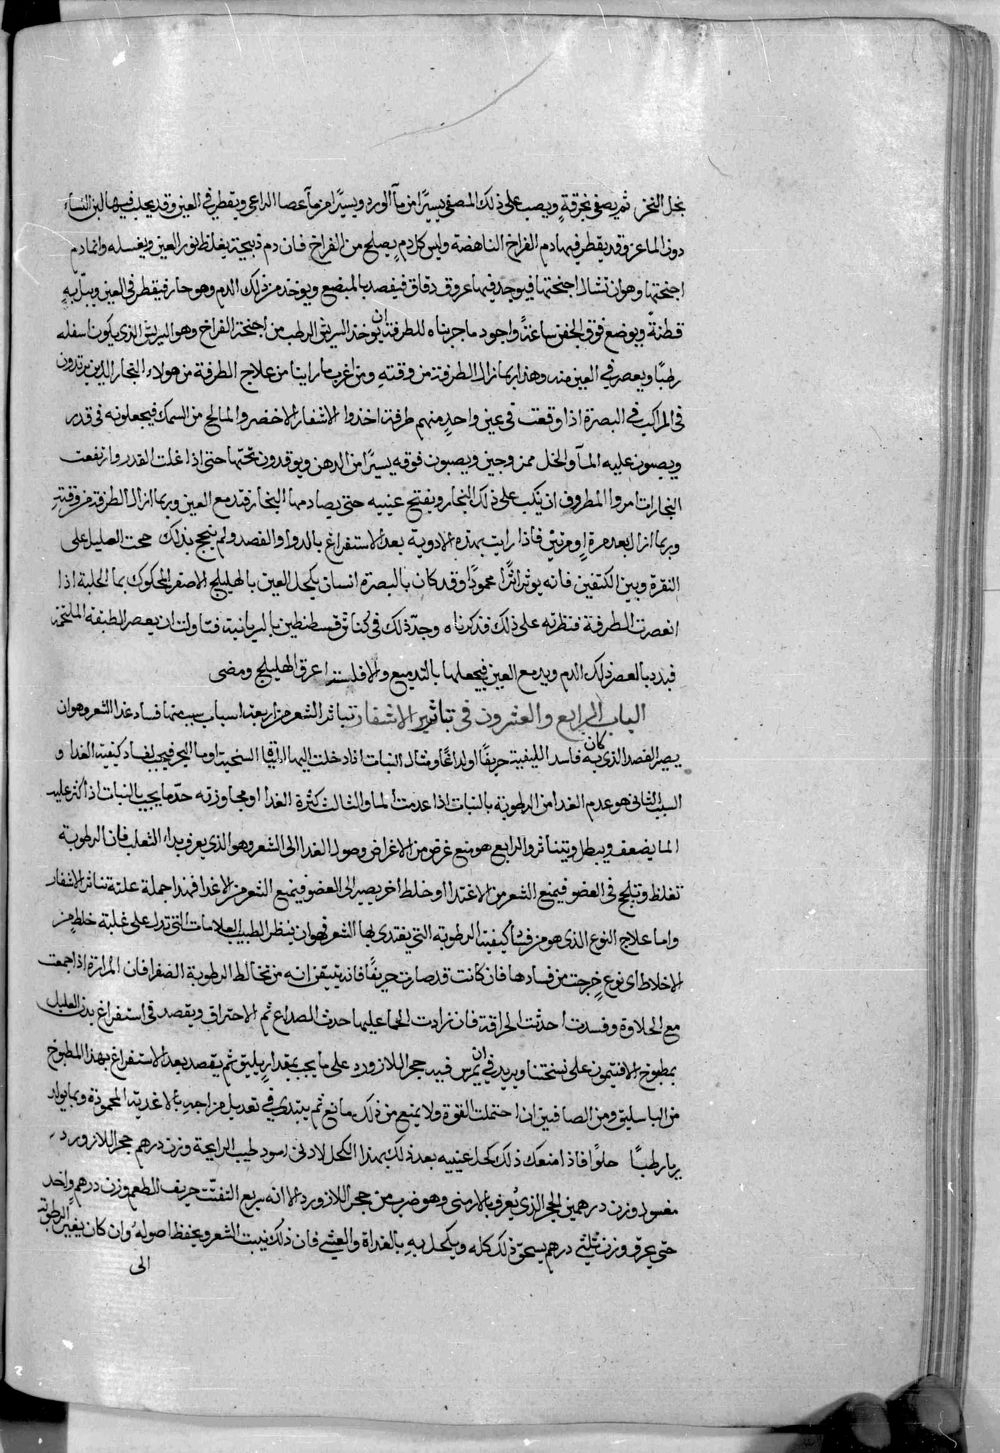 بخل النخر ثم يصفى بخرقةٍ ويصب على ذلك المصفى يسيرًا من مآ الورد ويسيرًا من مآ عصا الراعي ويقطر في العين وقد يحلب فيها لبن النسآء
دون الماعز وقد يقطر فيها دم الفراخ الناهضة وليس كل دمٍ يصلح من الفراخ فان دم ذبيحته يغلظ نور العين ويغسله وانما دم
اجنحتها وهو ان تشال اجنحتها فيوجد فيها عروق دقاق فيفصد بالمبضع ويوخذ من ذلك الدم وهو حار فيقطر في العين ويبلّ به
قطنةٌ ويوضع فوق الجفن ساعةً واجود ما جربناه للطرفة ان يوخذ الريش الرطب من اجنحة الفراخ وهو الريش الذي يكون اسفله
رطبًا ويعصر في العين منه وهذا ربما ازال الطرفة من وقته ومن اغرب ما راينا من علاج الطرفة من هولاء التجار الذين يترددون
في المراكب في البصرة اذا وقعت في عين واحدٍ منهم طرفة اخذوا الاشفار الاخضر والمالح من السمك فيجعلونه في قدر
ويصبون عليه المآ والخل ممزوجين ويصبون فوقه يسيرًا من الدهن ويوقدون تحتها حتى اذا غلت القدر وارتفعت
البخارات امروا المطروف ان يكب على ذلك البخار ويفتح عينيه حتى يصادمها البخار فتدمع العين وربما ازال الطرفة من وقته
وربما ازال بعد مرة او مرتين فاذا رايت بهذه الادوية بعد الاستفراغ بالدوا والفصد ولم ينجح بذلك حجمت العليل على
النقرة وبين الكتفين فانه يوثر اثرًا محمودًا وقد كان بالبصرة انسان يكحل العين بالهليلج الاصفر المحكوك بما الحلبة اذا
انعصرت الطرفة فنظرته على ذلك فذكر انه وجد ذلك في كناش قسطنطين بالسريانية فتاولت ان يعصر الطبقة الملتحمة
فيدد بالعصر ذلك الدم ويدمع العين فيجعلها بالتدميع والا فلسنا عرق الهليلج ومضى
الباب الرابع والعشرون في تناثر الاشفار تناثر الشعر من اربعة اسباب سبب منها فساد غدا الشعر وهو ان
يصير الفصد الذي كان به فاسد الكيفية حريفًا او لداغًا ومثال النبات اذا دخلت اليها المياه السخية او ما البحر فيجب لفساد كيفية الغدا و
السبب الثاني هو عدم الغدا من الرطوبة بالنبات اذا عدمت الما والثالث كثرة الغدا او مجاوزته حدّ ما يجب بالنبات اذا كثر عليه
الما يضعف ويبطل ويتناثر والرابع هو منع عرض من الاعراض وصول الغدا الى الشعر وهو الذي يعرف بداء الثعلب فان الرطوبة
تغلظ وتلحج في العضو فيمنع الشعر من الاغتدا او خلط اخر يصير الى العضو فيمنع الشعر من الاغدا فهذا جملة علة تناثر الاشفار
واما علاج النوع الذي هو من فساد كيفية الرطوبة التي يغتدى بها الشعر فهو ان ينظر الطبيب العلامات التي تدل على غلبة خلطٍ من
الاخلاط اي نوع خرجت من فسادها فان كانت قد صارت حريفًا فانه يتيقن انه من تخالط الرطوبة الصفرا فان المرارة اذا اجمعت
مع الحلاوة وفسدت احدثت الحراقة فان زادت الحما عليها حدث الصداع ثم الاحتراق ويقصد في استفراغ بدن العليل
بمطبوخ الافتيمون على نسختنا ويزيد في ان يمرس فيه حجر اللازورد على ما يجب بمقدارٍ يليق ثم يقصد بعد الاستفراغ بهذا المطبوخ
من الباسليق ومن الصافين ان احتملت القوة ولا يمنع من ذلك مانع ثم يبتدي في تعديل مزاجه بالاغدية المحمودة وبما يولد
ريا رطبًا حلوًا فاذا صنعك ذلك كحل عينيه بعد ذلك بهذا الكحل لادن اسود طيب الرايحة وزن درهم حجر اللازورد
مغسول وزن درهمين الحجر الذي يُعرف بالارمني وهو ضرب من حجر اللازورد الا انه سريع التفتّت حريف للطعم وزن درهمٍ واحد
حتى يحرق وزن ثلثي درهم يسحق ذلك كله ويكحل به بالغداة والعشي فان ذلك ينبت الشعر ويحفظ اصوله وان كان يغير الرطوبة
الى